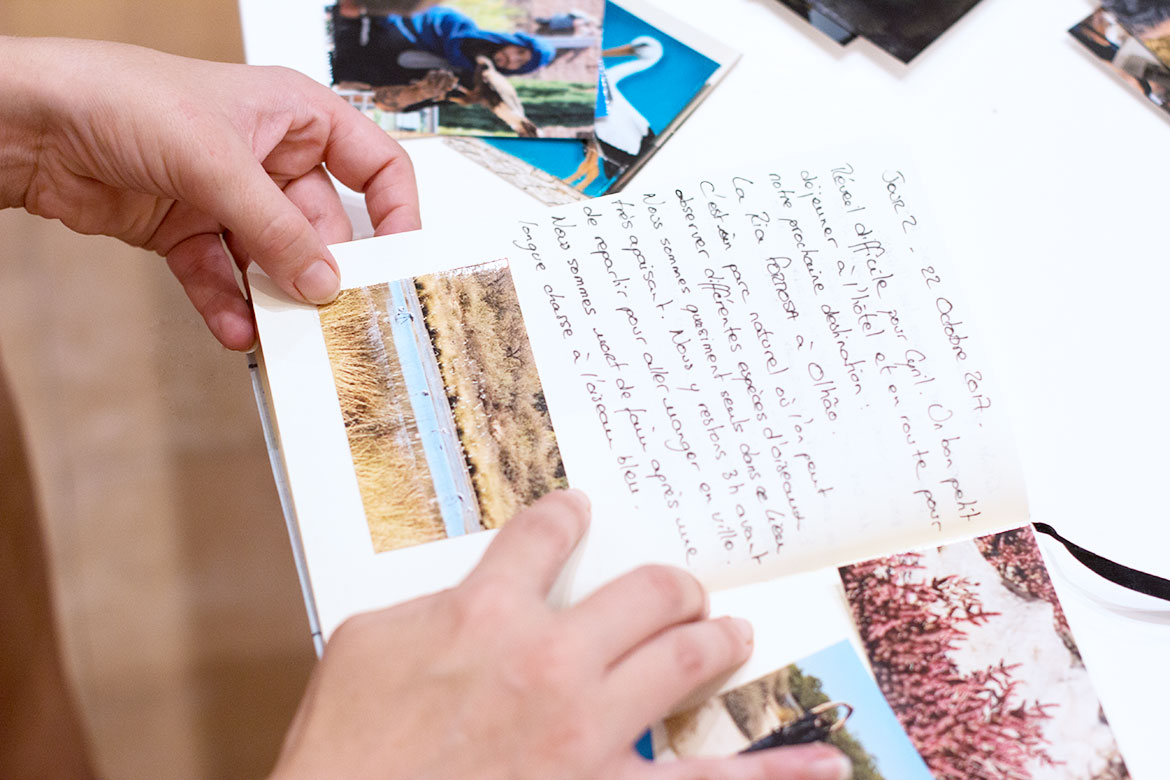 Jour 2 - 22 Octobre 2017.
Réveil difficile pour Cyril. Un bon petit
déjeuner à l'hôtel et en route pour
notre prochaine destination :
La Ria FORMOSA à Olhão.
C'est un parc naturel où l'on peut
observer différentes espèces d'oiseaux.
Nous sommes quasiment seuls dans ce lieu
très apaisant. Nous y restons 3h avant
de repartir pour aller manger en ville.
Nous sommes mort de faim après une
longue chasse à l'oiseau bleu.